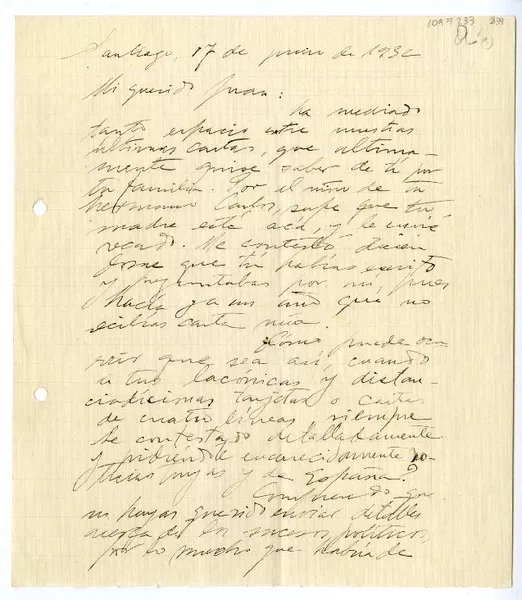 Santiago, 17 de junio de 1932
Mi querido Juan:
ha mediado
tanto espacio entre nuestras
ultimas cartas, que ultima-
mente quise saber de ti por
tu familia. Por el niño de tu
hermano Carlos, supe que tu
madre está acá, y le envié
recado. Me contestó dicien
dome que tú habías escrito
y preguntabas por mí, pues
hacía ya un año que no
recibías carta mía.
Cómo puede ocu
rrir que sea así, cuando
a tus lacónicas y distan-
ciadísimas tarjetas o cartas
de cuatro líneas siempre
he contestado detalladamente
y pidiéndote encarecidamente no-
ticias tuyas y de España?
Comprendo que
no hayas querido enviar detalles
acerca de los sucesos políticos,
por lo mucho que habría de